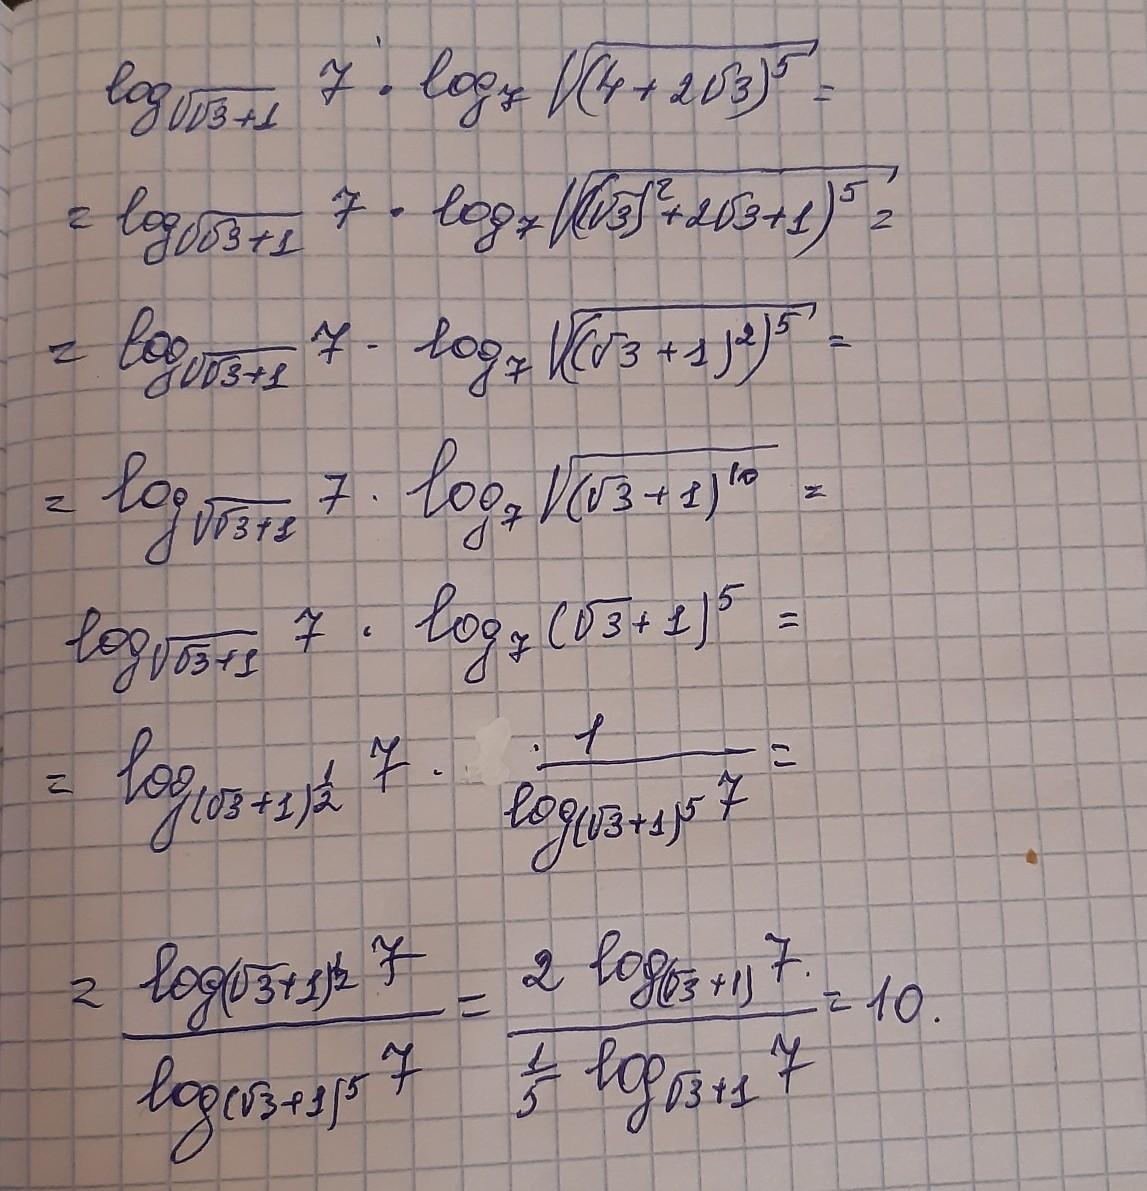 log_{√(√3+1)} 7 · log_7 √((4+2√3)^5) =
= log_{√(√3+1)} 7 · log_7 √(((√3)^2+2√3+1)^5) =
= log_{√(√3+1)} 7 · log_7 √(((√3+1)^2)^5) =
= log_{√(√3+1)} 7 · log_7 √((√3+1)^{10}) =
log_{√(√3+1)} 7 · log_7 (√3+1)^5 =
= log_{(√3+1)^{1/2}} 7 · · \frac{1}{log_{(√3+1)^5} 7} =
= \frac{log_{(√3+1)^{1/2}} 7}{log_{(√3+1)^5} 7} = \frac{2 log_{(√3+1)} 7}{\frac{1}{5} log_{√3+1} 7} = 10.